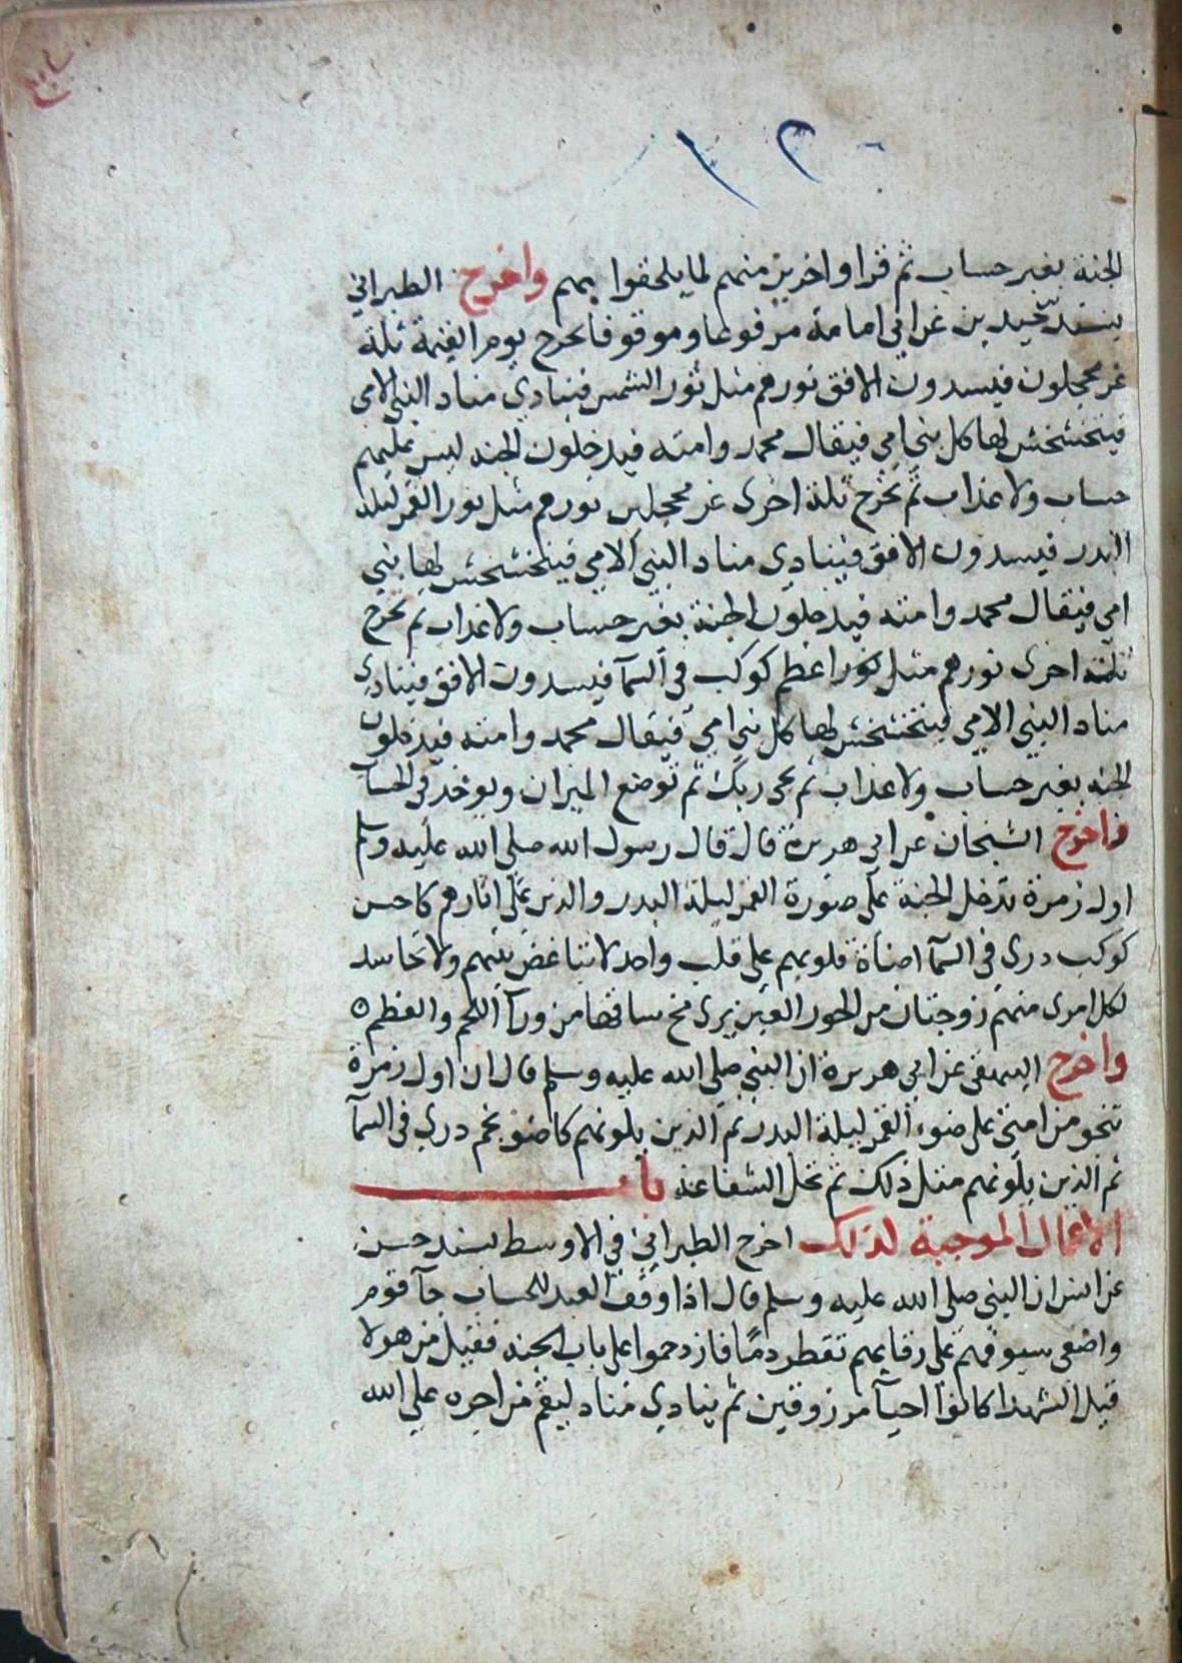 الجنة بغير حساب ثم قرا واخرين منهم لما يلحقوا بهم واخرج الطبراني
بسند جيد عن ابي امامة مرفوعا وموقوفا تخرج يوم القيمة ثلة
غر محجلون فيسدون الافق نورهم مثل نور الشمس فينادي مناد النبي الامي
فيتخشخش لها كل نبي امي فيقال محمد وامته فيدخلون الجنه ليس عليهم
حساب ولا عذاب ثم تخرج ثلة اخرى غر محجلين نورهم مثل نور القمر ليلة
البدر فيسدون الافق فينادي مناد النبي الامي فيتخشخش لها نبي
امي فيقال محمد وامته فيدخلون الجنة بغير حساب ولا عذاب ثم تخرج
ثلة اخرى نورهم مثل نور اعظم كوكب في السمآ فيسدون الافق فينادي
مناد النبي الامي فيتخشخش لها كل نبي امي فيقال محمد وامته فيدخلون
الجنه بغير حساب ولا عذاب ثم يجى ربك ثم توضع الميزان ويوخذ في الحساب
واخرج الشيخان عن ابي هريرة قال قال رسول الله صلى الله عليه وسلم
اول زمرة تدخل الجنة على صورة القمر ليلة البدر والذين على اثارهم كاحسن
كوكب دري في السمآ اضاة قلوبهم على قلب واحد لا تباغض بينهم ولا تحاسد
لكل امرى منهم زوجتان من الحور العين يرى مخ ساقها من ورآ اللحم والعظم ه
واخرج البيهقى عن ابي هريرة ان النبي صلى الله عليه وسلم قال ان اول زمرة
تنجو من امتي على ضوء القمر ليلة البدر ثم الذين يلونهم كاضو نجم دري في السمآ
ثم الذين يلونهم مثل ذلك ثم تحل الشفاعة باب
الاعمال الموجبة لذلك اخرج الطبراني في الاوسط بسند حسن
عن انس ان النبي صلى الله عليه وسلم قال اذا وقف العبد للحساب جآ قوم
واضعى سيوفهم على رقابهم تقطر دمًا فازدحموا على باب الجنه فقيل من هولا
قيل الشهدا كانوا احيآ مرزوقين ثم ينادي مناد ليقم من اجره على الله